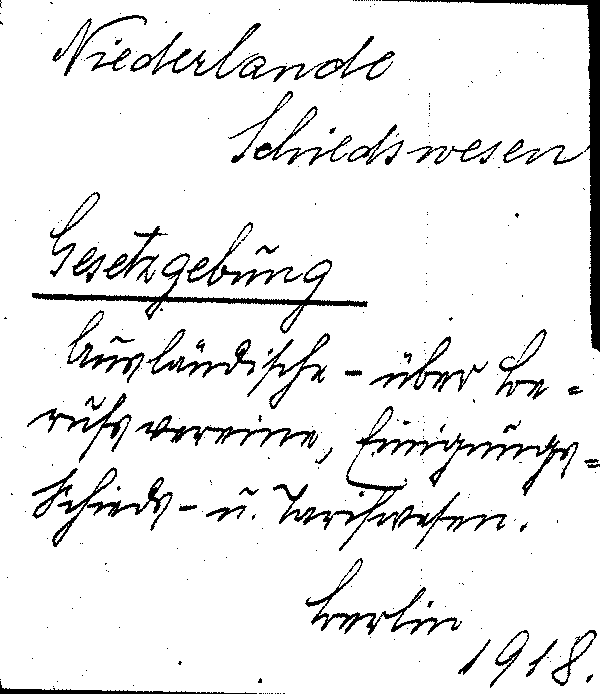 Niederlande
Schiedswesen
Gesetzgebung
Ausländische - über Be-
rufsvereine, Einigungs-
Schieds- u. Tarifwesen.
Berlin
1918.